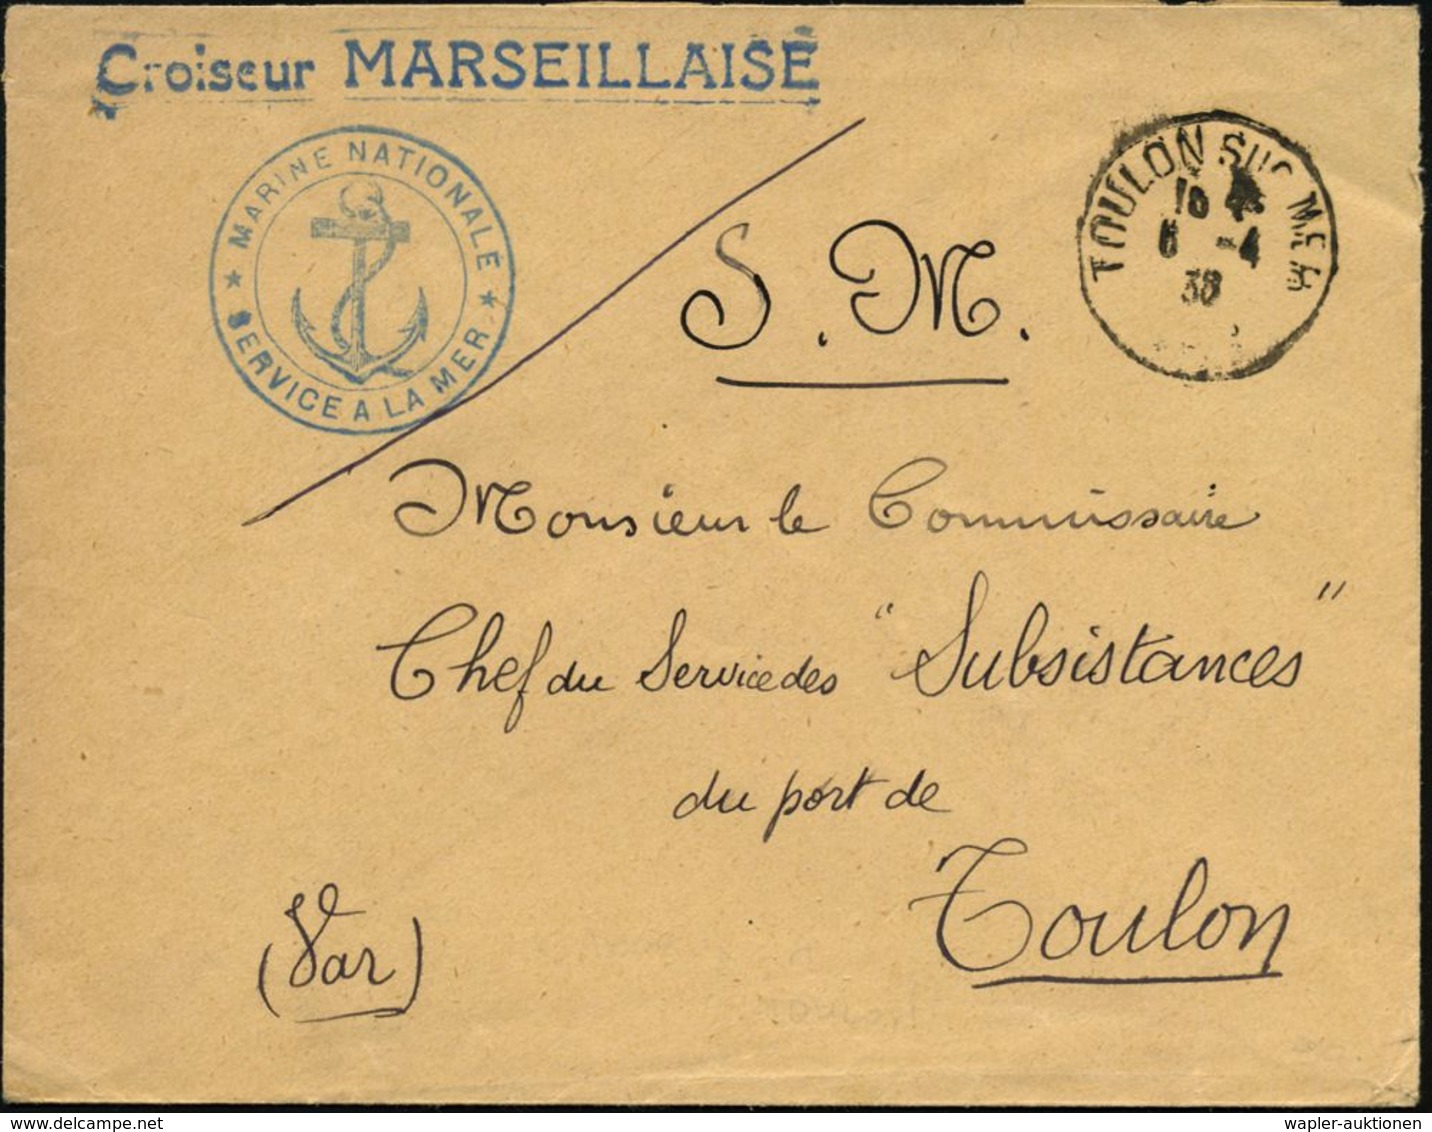 Croiseur MARSEILLAISE
★ MARINE NATIONALE ★
SERVICE A LA MER
TOULON SUR MER
6 -4
38
S. M.
Monsieur le Commissaire
Chef du Service des "Subsistances"
du port de
Toulon
(Var)
wapler-auktionen